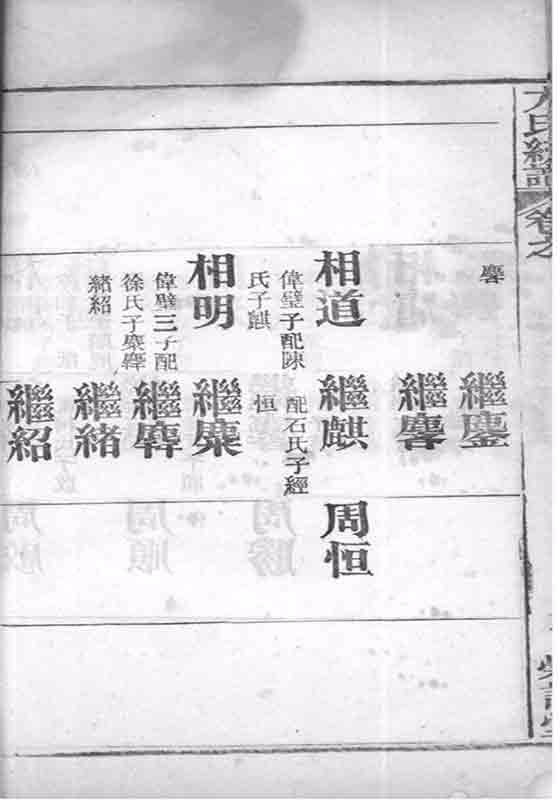 氏
卷之
繼鏖
繼
相道
偉璧子配陳
氏子麒
繼麒
配石氏子經
恒
周恒
相明
偉璧三子配
徐氏子
緒紹
繼
繼
繼緒
繼紹